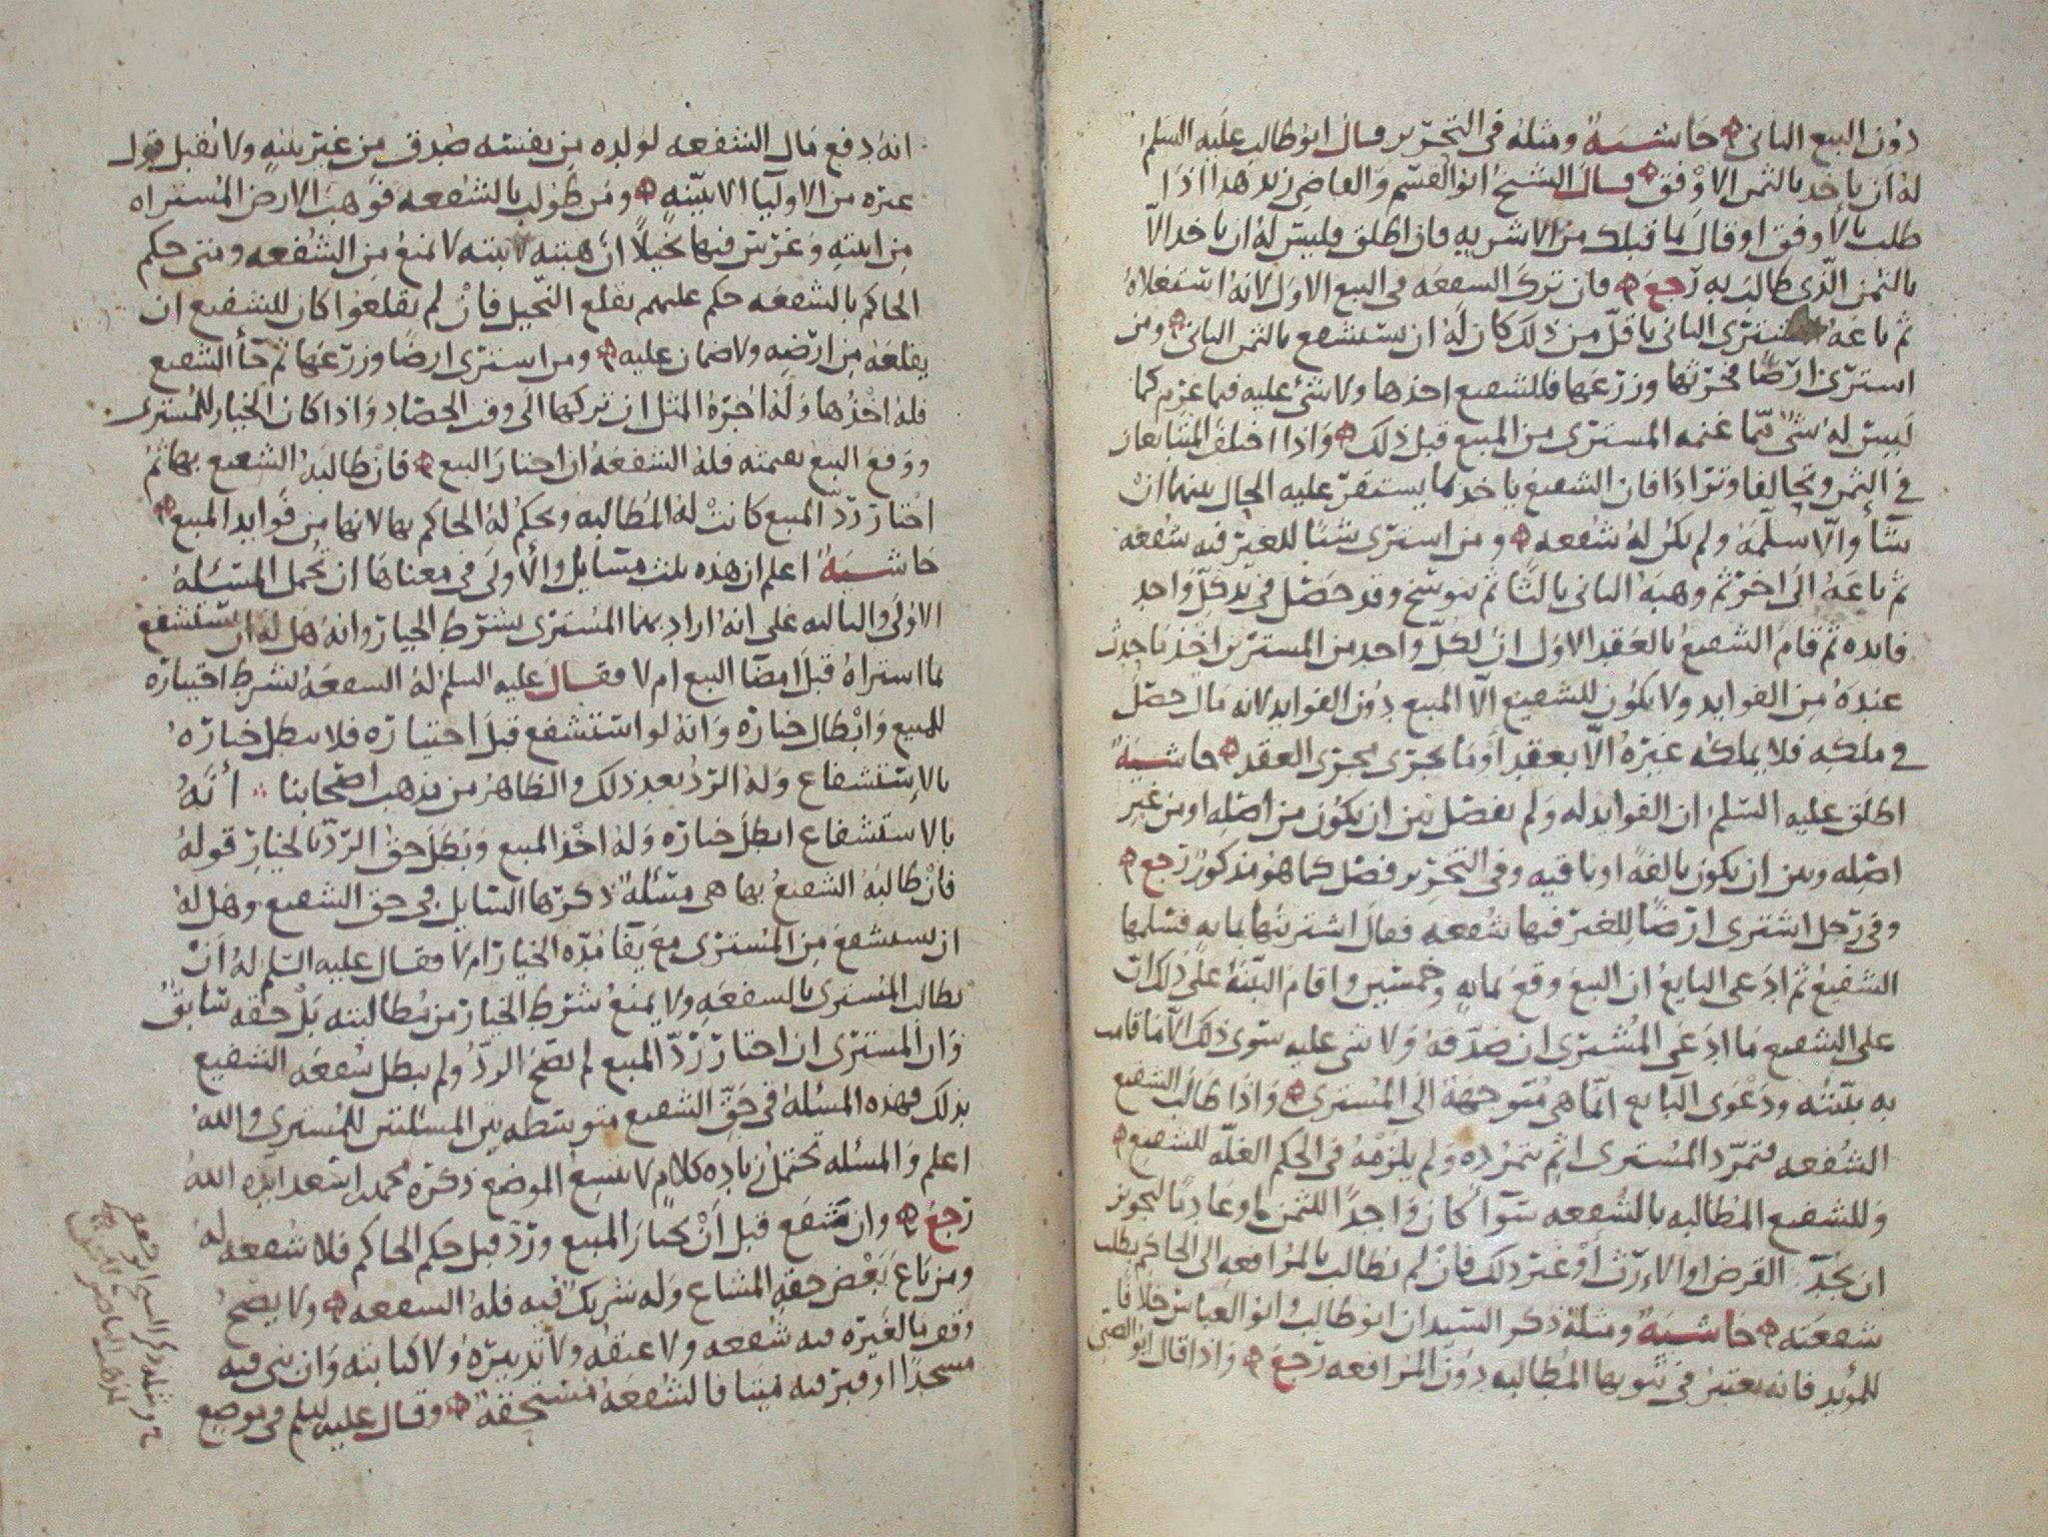 دون البيع الثاني حاشية ومثله في التحرير وقال ابو طالب عليه السلم
له ان ياخذ بالثمن الاوفق قال الشيخ ابو القسم والقاضي زيد هذا اذا
طلب بالاوفق او قال بما قبلك من الاشرية فان اطلق فليس له ان ياخذ الا
بالثمن الذي طالب به رجع فان ترك الشفعه في البيع الاول لانه استغلاه
ثم باعه المشتري الثاني باقل من ذلك كان له ان يستشفع بالثمن الثاني ومن
اشترى ارضا فحرثها وزرعها فللشفيع اخذها ولا شي عليه فيما غرم كما
ليس له شي مما غنمه المشتري من المبيع قبل ذلك واذا اختلف المتبايعان
في الثمن وتحالفا وترادا فان الشفيع ياخذ بما يستقر عليه الحال بينهما ان
شآ والا سلمه ولم يكن له شفعه ومن اشترى شيا للغير فيه شفعه
ثم باعه الى اخر ثم وهبه الثاني ثالثا ثم تنوسخ وقد حصل في يد كل واحد
فايده ثم قام الشفيع بالعقد الاول ان لكل واحد من المشترين اخذ ما حدث
عنده من الفوايد ولا يكون للشفيع الا المبيع دون الفوايد لانه مال حصل
في ملكه فلا يملكه غيره الا بعقد او ما يجري مجرى العقد حاشية
اطلق عليه السلم ان الفوايد له ولم يفصل بين ان يكون من اصله او من غير
اصله وبين ان يكون تالفه او باقيه وفي التحرير فصل كما هو مذكور رجع
وفي رجل اشترى ارضا للغير فيها شفعه فقال اشتريتها بمايه فسلمها
الشفيع ثم ادعى البايع ان البيع وقع بمايه وخمسين واقام البينة على ذلك ان
على الشفيع ما ادعى المشتري ان صدقه ولا شي عليه سوى ذلك الا ما قامت
به بينته ودعوى البايع انما هي متوجهة الى المشتري واذا طالب الشفيع
الشفعه فتمرد المشتري اثم بتمرده ولم يلزمه في الحكم الغله للشفيع
وللشفيع المطالبه بالشفعه سوآ كان واجدا للثمن او عادما لتجويز
ان يجد القرض او الارث او غير ذلك فان لم يطالب بالمرافعه الى الحاكم بطلت
شفعته حاشية ومثله ذكر السيدان ابو طالب وابو العباس خلافا
للمؤيد فانه يعتبر في ثبوتها المطالبه دون المرافعه رجع واذا قال ابو الصبي
انه دفع مال الشفعه لولده من نفسه صدق من غير بينه ولا يقبل قول
غيره من الاوليا الا ببينه ومن طولب بالشفعه فوهب الارض المشتراه
من ابنته وغرس فيها نخيلا ان هبته لابنته لا تمنع من الشفعه ومتى حكم
الحاكم بالشفعه حكم عليهم بقلع النخيل فان لم يقلعوا كان للشفيع ان
يقلعه من ارضه ولا ضمان عليه ومن اشترى ارضا وزرعها ثم جآ الشفيع
فله اخذها وله اجرة المثل ان تركها الى وقت الحصاد واذا كان الخيار للمشتري
ووقع البيع بقيمته فله الشفعه ان اختار البيع فان طالبه الشفيع بها ثم
اختار رد المبيع كانت له المطالبه ويحكم له الحاكم بها لانها من فوايد المبيع
حاشية اعلم ان هذه ثلث مسايل والاولى في معناها ان تحمل المسئلة
الاولى والثالثه على انه اراد بهما المشتري بشرط الخيار وانه هل له ان يستشفع
بما اشتراه قبل امضآ البيع ام لا فقال عليه السلم له الشفعه بشرط اختياره
للمبيع وابطال خياره وانه لو استشفع قبل اختياره فلا يبطل خياره
بالاستشفاع وله الرد بعد ذلك والظاهر من مذهب اصحابنا انه
بالاستشفاع ابطل خياره وله اخذ المبيع وبطل حق الرد بالخيار قوله
فان طالبه الشفيع بها هي مسئلة ذكرها السايل في حق الشفيع وهل له
ان يستشفع من المشتري مع بقآ مدة الخيار ام لا فقال عليه السلم له ان
يطالب المشتري بالشفعه ولا يمنع شرط الخيار من مطالبته بل حقه سابق
وان المشتري ان اختار رد المبيع لم يصح الرد ولم يبطل شفعه الشفيع
بذلك فهذه المسئلة في حق الشفيع متوسطه بين المسئلتين للمشتري والله
اعلم والمسئله تحتمل زيادة كلام لا يتسع الموضع ذكره محمد بن اسعد ايده الله
رجع وان شفع قبل ان يختار المبيع ورد قبل حكم الحاكم فلا شفعه له
ومن باع بعض حقه المشاع وله شريك فيه فله الشفعه ولا يصح
وقف ما لغيره فيه شفعه ولا عتقه ولا تدبيره ولا كتابته وان بنى فيه
مسجدا او قبر فيه ميتا فالشفعه مستحقة وقال عليه السلم في موضع